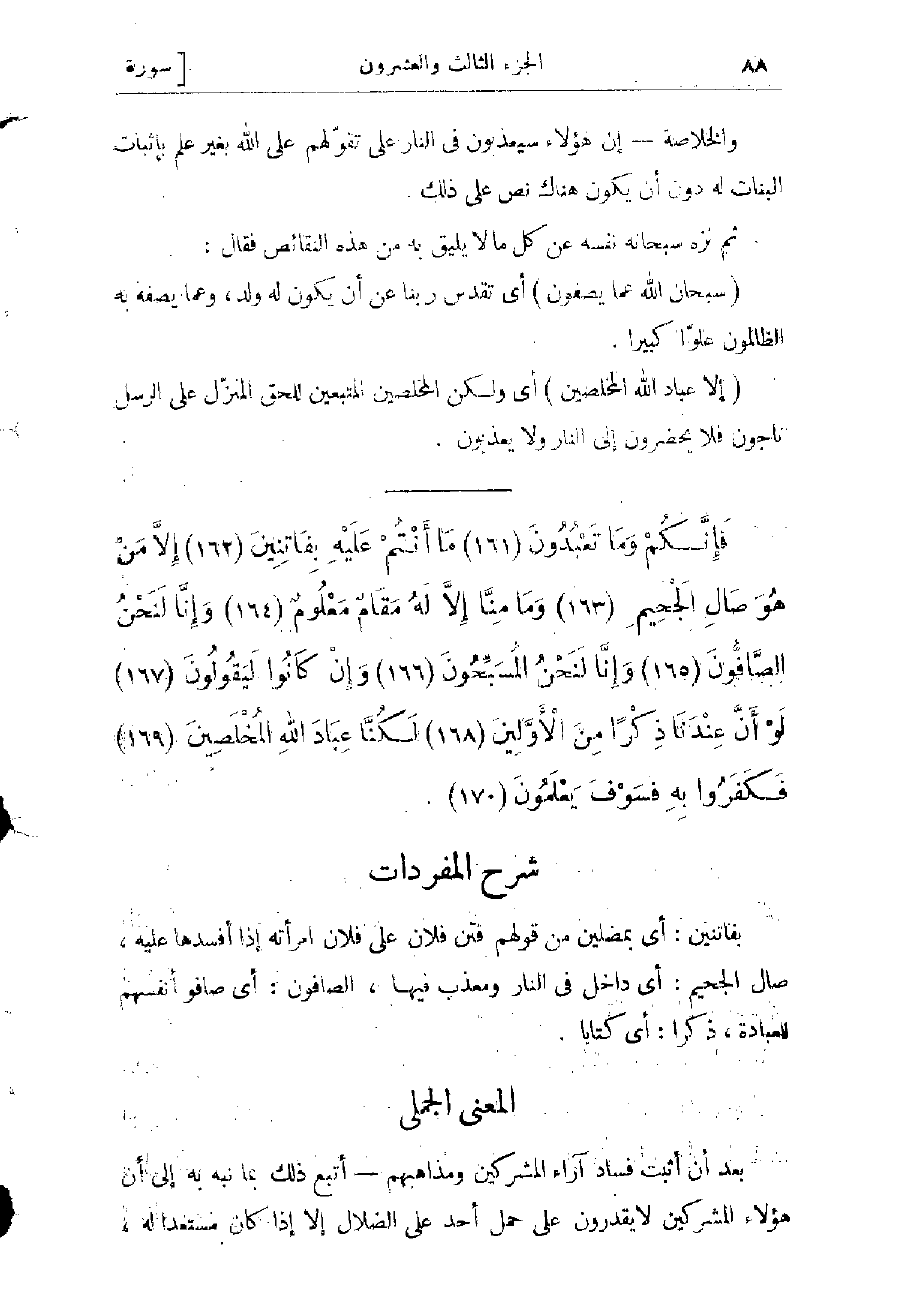 ٨٨ الجزء الثالث والعشرون [ سورة
والخلاصة — إن هؤلاء سيعذبون فى النار على تقوّلهم على الله بغير علم بإثبات
البنات له دون أن يكون هناك نص على ذلك .
ثم نزه سبحانه نفسه عن كل ما لا يليق به من هذه النقائص فقال :
( سبحان الله عما يصفون ) أى تقدس ربنا عن أن يكون له ولد ، وعما يصفه به
الظالمون علوّا كبيرا .
( إلا عباد الله المخلصين ) أى ولكن المخلصين المتبعين للحق المنزّل على الرسل
ناجون فلا يحضرون إلى النار ولا يعذبون .
فَإِنَّكُمْ وَمَا تَعْبُدُونَ (١٦١) مَا أَنْتُمْ عَلَيْهِ بِفَاتِنِينَ (١٦٢) إِلاَّ مَنْ
هُوَ صَالِ الْجَحِيمِ (١٦٣) وَمَا مِنَّا إِلاَّ لَهُ مَقَامٌ مَعْلُومٌ (١٦٤) وَإِنَّا لَنَحْنُ
الصَّافُّونَ (١٦٥) وَإِنَّا لَنَحْنُ الْمُسَبِّحُونَ (١٦٦) وَإِنْ كَانُوا لَيَقُولُونَ (١٦٧)
لَوْ أَنَّ عِنْدَنَا ذِكْرًا مِنَ الْأَوَّلِينَ (١٦٨) لَكُنَّا عِبَادَ اللهِ الْمُخْلَصِينَ (١٦٩)
فَكَفَرُوا بِهِ فَسَوْفَ يَعْلَمُونَ (١٧٠) .
شرح المفردات
بفاتنين : أى بمضلين من قولهم فتن فلان على فلان امرأته إذا أفسدها عليه ،
صال الجحيم : أى داخل فى النار ومعذب فيها ، الصافون : أى صافو أنفسهم
للعبادة ، ذكرا : أى كتابا .
المعنى الجملى
بعد أن أثبت فساد آراء المشركين ومذاهبهم — أتبع ذلك بما نبه به إلى أن
هؤلاء المشركين لا يقدرون على حمل أحد على الضلال إلا إذا كان مستعدا له ،